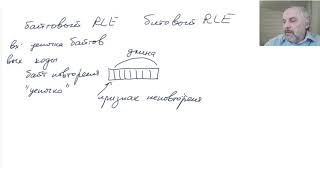 байтовый RLE битовый RLE
вх: цепочка байтов
вых коды
длина
байт повторения
"цепочка"
признак неповторения